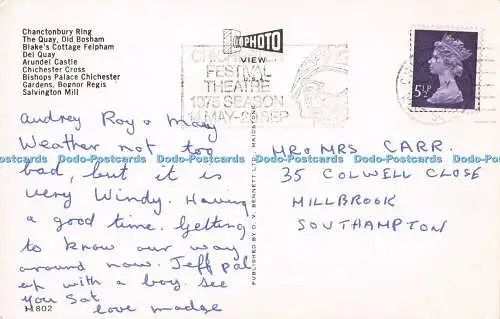 Chanctonbury Ring
The Quay, Old Bosham
Blake's Cottage Felpham
Del Quay
Arundel Castle
Chichester Cross
Bishops Palace Chichester
Gardens, Bognor Regis
Salvington Mill
PHOTO
VIEW
CHICHESTER
FESTIVAL
THEATRE
1975 SEASON
MAY-20 SEP
5½P
Audrey Roy & Mary
Weather not too
bad, but it is
very Windy. Having
a good time. Getting
to know our way
around now. Jeff pal
up with a boy. See
you Sat
love madge
M802
PUBLISHED BY D. V. BENNETT LTD., MAIDSTONE
MR & MRS CARR.
35 COLWELL CLOSE
MILLBROOK
SOUTHAMPTON
Dodo-Postcards Dodo-Postcards Dodo-Postcards Dodo-Postcards Dodo-Postcards